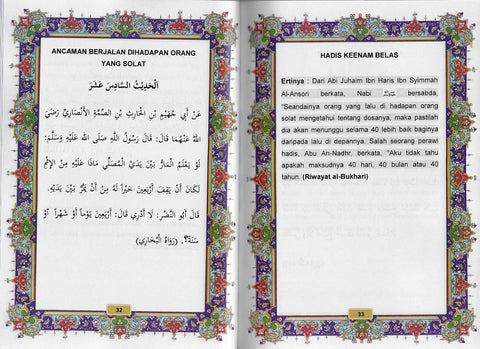 ANCAMAN BERJALAN DIHADAPAN ORANG
YANG SOLAT
اَلْحَدِيْثُ السَّادِسَ عَشَرَ
عَنْ أَبِي جُهَيْمِ بْنِ الْحَارِثِ بْنِ الصِّمَّةِ الْأَنْصَارِيِّ رَضِيَ
اللهُ عَنْهُمَا قَالَ: قَالَ رَسُوْلُ اللَّهِ صَلَّى اللَّهُ عَلَيْهِ وَسَلَّمَ:
لَوْ يَعْلَمُ الْمَارُّ بَيْنَ يَدَيْ الْمُصَلِّي مَاذَا عَلَيْهِ مِنَ الْإِثْمِ
لَكَانَ أَنْ يَقِفَ أَرْبَعِينَ خَيْرًا لَهُ مِنْ أَنْ يَمُرَّ بَيْنَ يَدَيْهِ.
قَالَ أَبُو النَّضْرِ: لَا أَدْرِي قَالَ: أَرْبَعِينَ يَوْمًا أَوْ شَهْرًا أَوْ
سَنَةً؟. (رَوَاهُ الْبُخَارِي)
32
HADIS KEENAM BELAS
Ertinya : Dari Abi Juhaim Ibn Haris Ibn Syimmah
Al-Ansori berkata, Nabi ﷺ bersabda,
"Seandainya orang yang lalu di hadapan orang
solat mengetahui tentang dosanya, maka pastilah
dia akan menunggu selama 40 lebih baik baginya
daripada lalu di depannya. Salah seorang perawi
hadis, Abu An-Nadhr, berkata, "Aku tidak tahu
apakah maksudnya 40 hari, 40 bulan atau 40
tahun. (Riwayat al-Bukhari)
33